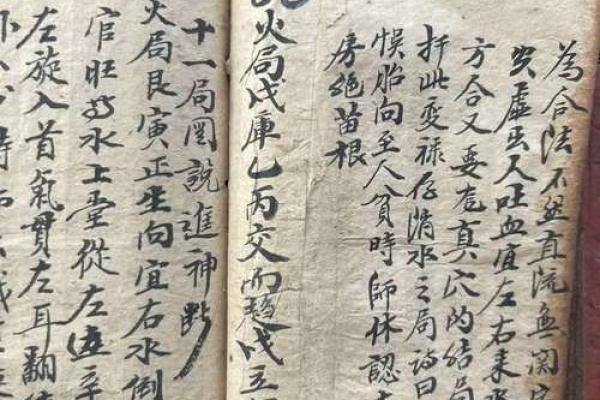 為合法不直流無関
虛出人吐血宜左右来水
方合又要尨真穴的結局
扦此変禄存消水之局詩曰
悞胎向至人貧時師休認
房絕苗根
火局戊庫乙丙交而趨戊立
十一局图說進神断
火局艮寅正生向宜右水倒
官旺水上堂從左辛
左旋入首氣貫左耳翻